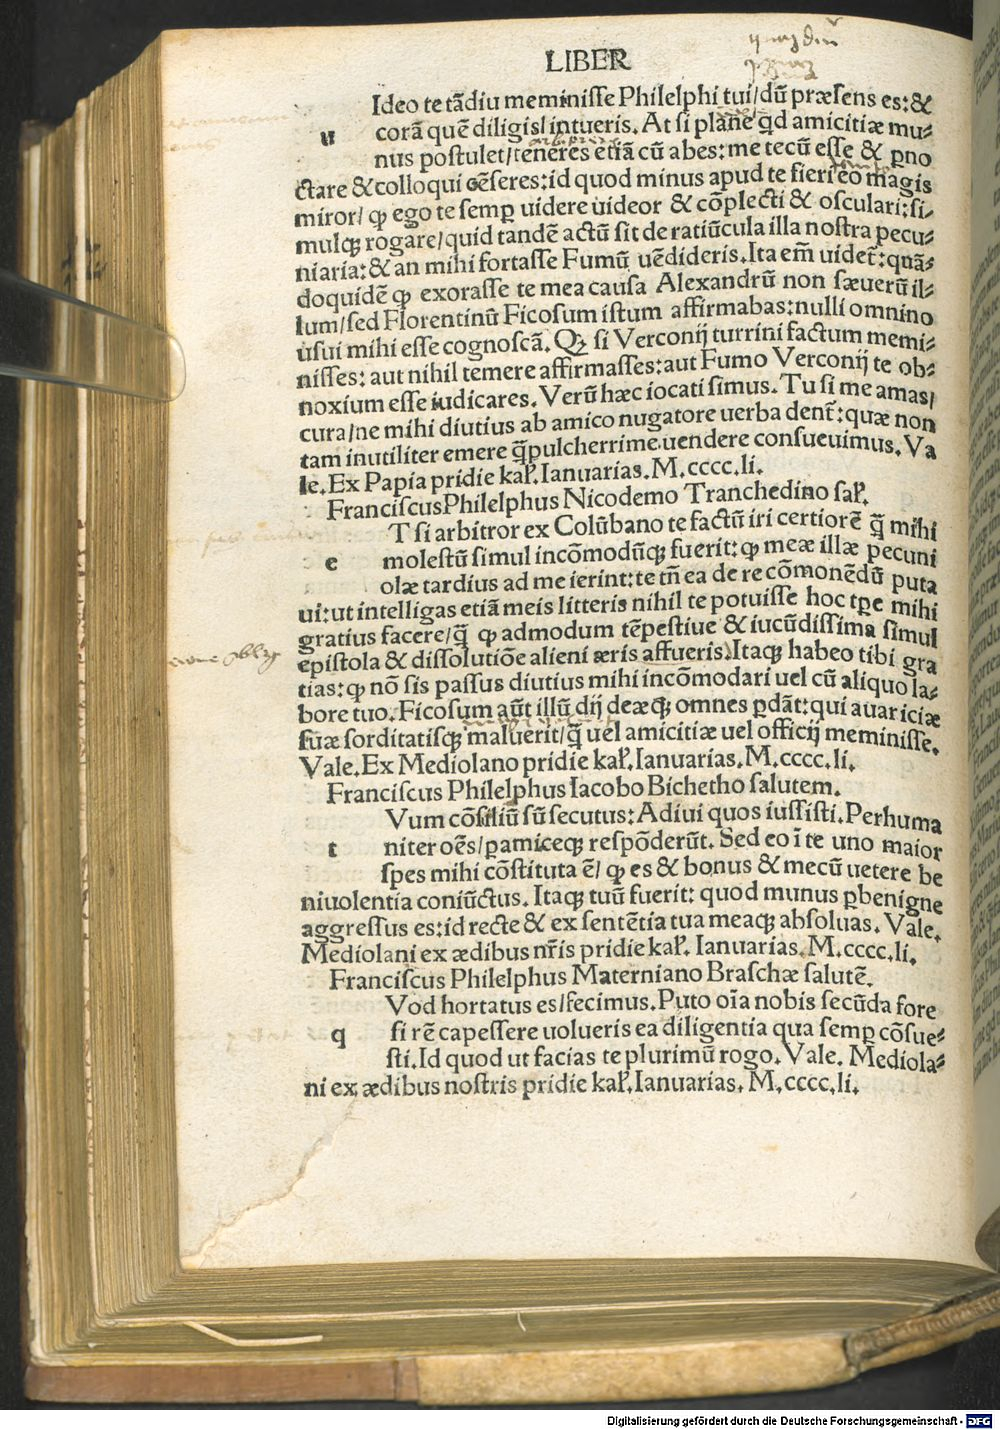 LIBER
Ideo te tādiu meminiſſe Philelphi tui/dū præſens es:&
u corā quē diligis/intueris. At ſi plane qd amicitiæ mu⸗
nus poſtulet/teneres etiā cū abes:me tecū eſſe & ꝑno
ctare & colloqui cēſeres:id quod minus apud te fieri eo magis
miror/ ꝙ ego te ſemꝑ uidere uideor & cōplecti & oſculari:ſi⸗
mulqꝫ rogare/quid tandē actū ſit de ratiūcula illa noſtra pecu⸗
niaria:& an mihi fortaſſe Fumū uēdideris. Ita em̄ uidet̄:quā⸗
doquidē ꝙ exoraſſe te mea cauſa Alexandrū non ſæuerū il⸗
lum/ſed Florentinū Ficoſum iſtum affirmabas:nulli omnino
uſui mihi eſſe cognoſcā. Qꝫ ſi Verconij turrini factum memi⸗
niſſes: aut nihil temere affirmaſſes:aut Fumo Verconij te ob⸗
noxium eſſe iudicares. Verū hæc iocati ſimus. Tu ſi me amas/
cura/ne mihi diutius ab amico nugatore uerba dent̄:quæ non
tam inutiliter emere q̄ pulcherrime uendere conſueuimus. Va
le. Ex Papia pridie kaꝉ. Ianuarias. M.cccc.li.
Franciſcus Philelphus Nicodemo Tranchedino ſaꝉ.
T ſi arbitror ex Colūbano te factū iri certiorē q̄ mihi
e moleſtū ſimul incōmodūqꝫ fuerit:ꝙ meæ illæ pecuni
olæ tardius ad me ierint:te tn̄ ea de re cōmonēdū puta
ui:ut intelligas etiā meis litteris nihil te potuiſſe hoc tꝑe mihi
gratius facere/q̄ ꝙ admodum tēpeſtiue & iucūdiſſima ſimul
epiſtola & diſſolutiōe alieni æris affueris. Itaqꝫ habeo tibi gra
tias:ꝙ nō ſis paſſus diutius mihi incōmodari uel cū aliquo la⸗
bore tuo. Ficoſum aūt illū dij deæqꝫ omnes ꝑdāt:qui auariciæ
ſuæ ſorditatiſqꝫ maluerit/q̄ uel amicitiæ uel officij meminiſſe.
Vale. Ex Mediolano pridie kaꝉ. Ianuarias. M.cccc.li.
Franciſcus Philelphus Iacobo Bichetho ſalutem.
Vum cōſiliū ſū ſecutus: Adiui quos iuſſiſti. Perhuma
t niter oēs/ꝑamiceqꝫ reſpōderūt. Sed eo ī te uno maior
ſpes mihi cōſtituta ē/ ꝙ es & bonus & mecū uetere be
niuolentia coniūctus. Itaqꝫ tuū fuerit: quod munus ꝑbenigne
aggreſſus es:id recte & ex ſentētia tua meaqꝫ abſoluas. Vale.
Mediolani ex ædibus nr̄is pridie kaꝉ. Ianuarias. M.cccc.li.
Franciſcus Philelphus Materniano Braſchæ ſalutē.
Vod hortatus es/fecimus. Puto oīa nobis ſecūda fore
q ſi rē capeſſere uolueris ea diligentia qua ſemꝑ cōſue⸗
ſti. Id quod ut facias te plurimū rogo. Vale. Mediola⸗
ni ex ædibus noſtris pridie kaꝉ. Ianuarias. M.cccc.li.
Digitalisierung gefördert durch die Deutsche Forschungsgemeinschaft - DFG